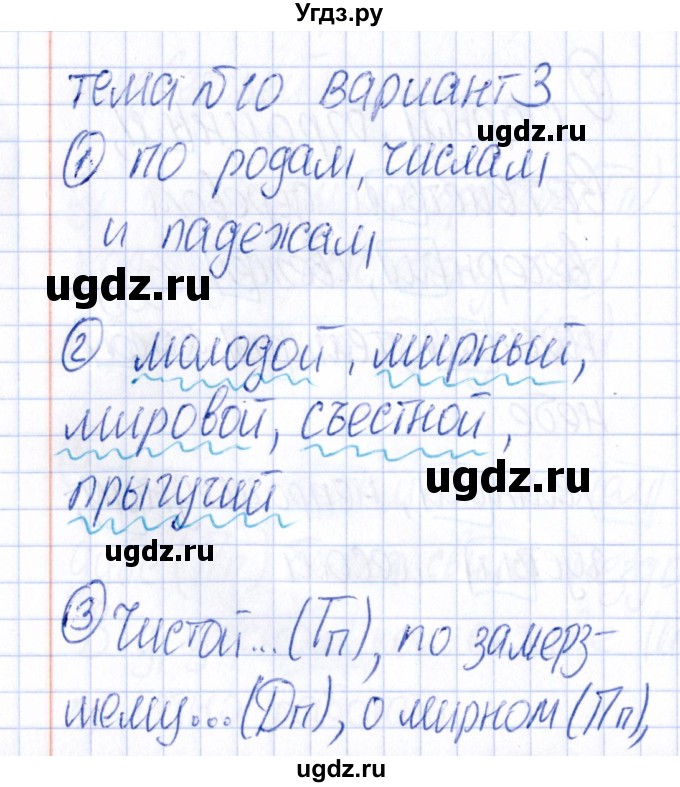 Угдз.ру
тема №10 вариант 3
угдз.ru
① по родам, числам
и падежам
ugdz.ru
② молодой, мирный,
мировой, съестной,
ugdz.ru
прыгучий
ugdz.ru
③ Чистой... (Тп), по замерз-
шему... (Дп), о мирном (Пп),
ugdz.ru